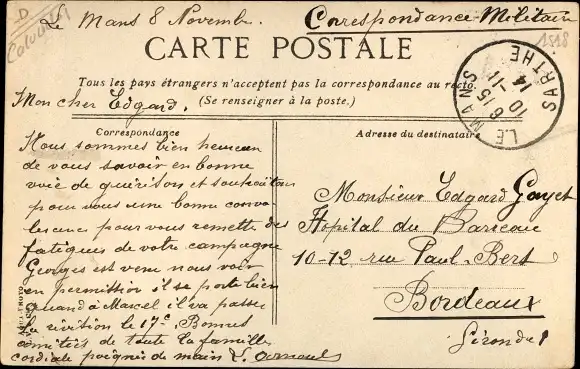 Le Mans 8 Novembre. Correspondance Militaire
CARTE POSTALE
Tous les pays étrangers n'acceptent pas la correspondance au recto.
(Se renseigner à la poste.)
Mon cher Edgard.
Correspondance
Nous sommes bien heureux
de vous savoir en bonne
voie de guérison et souhaitons
pour vous une bonne conva-
lescence pour vous remettre des
fatigues de votre campagne
Georges est venu nous voir
en permission il se porte bien
quand à Marcel il va passer
la révision le 17c. Bonnes
amitiés de toute la famille
cordiale poignée de main
Adresse du destinataire
Monsieur Edgard Gayet
Hopital du Barreau
10-12 rue Paul-Bert
Bordeaux
Gironde
LE MANS
SARTHE
6 15
10-11
14
1518